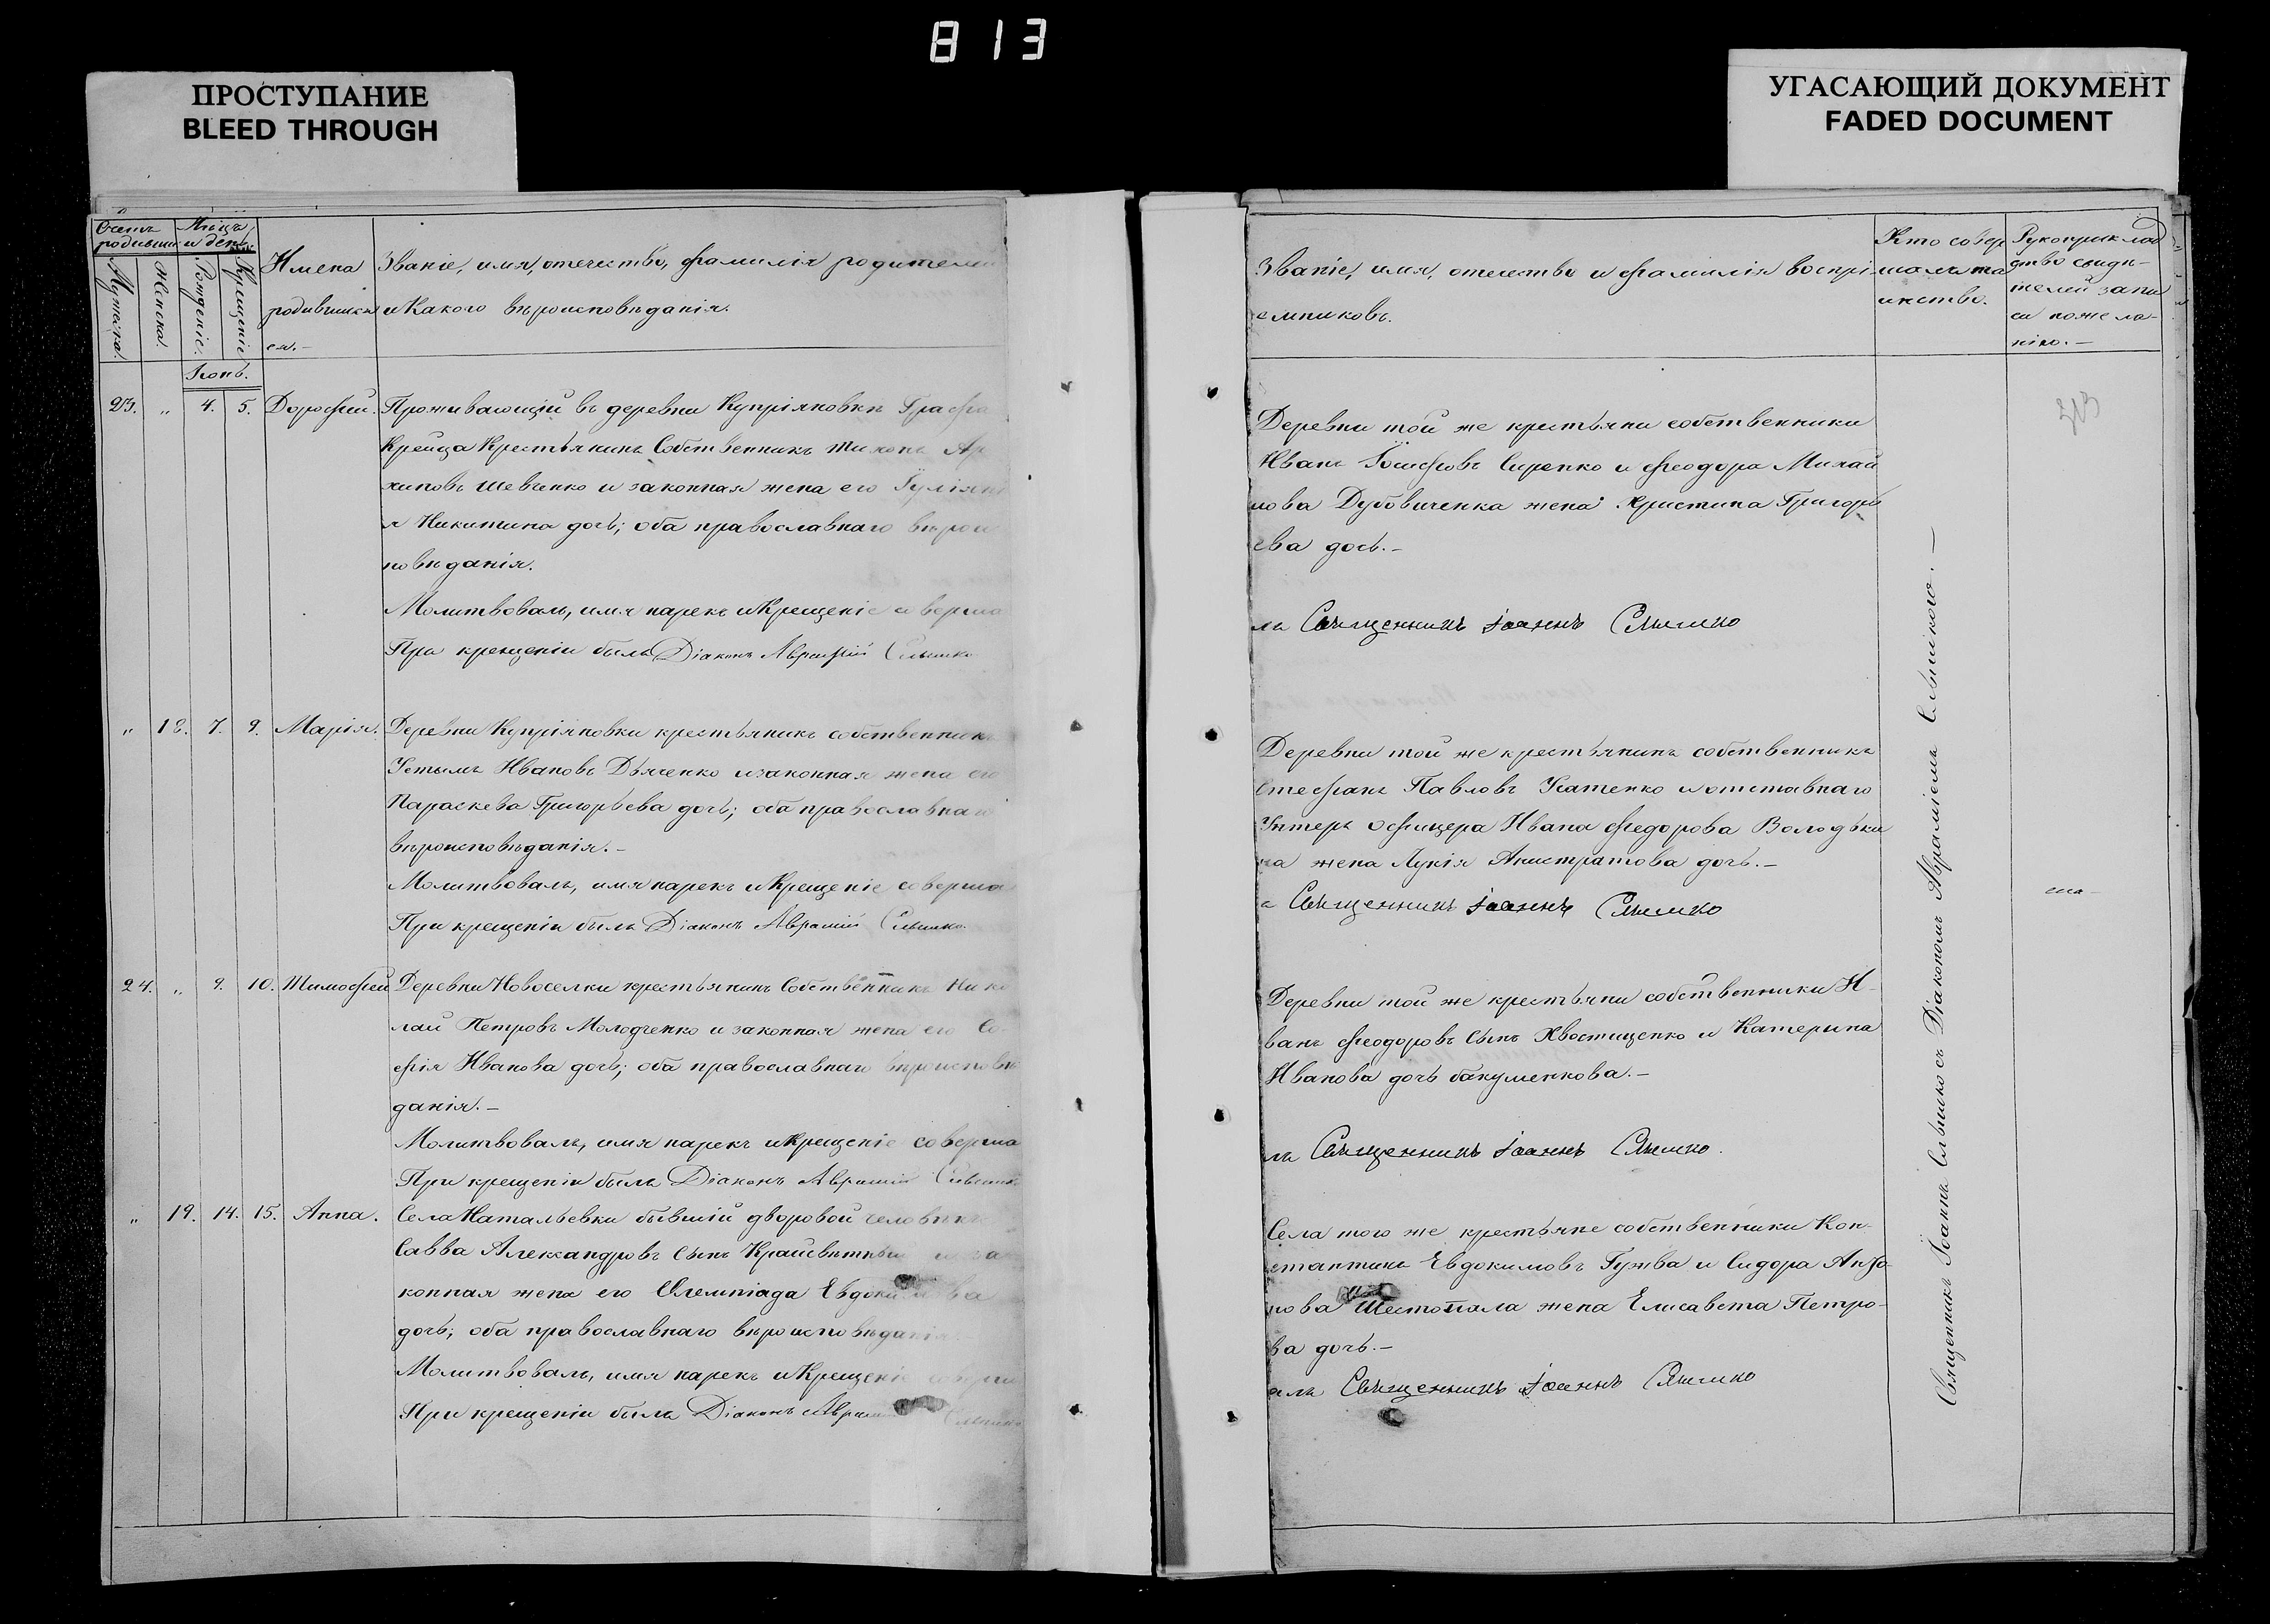 813
ПРОСТУПАНИЕ
BLEED THROUGH
УГАСАЮЩИЙ ДОКУМЕНТ
FADED DOCUMENT
Счетъ родивших
Мѣсяцъ и день
Мужска.
Женска.
Рожденіе.
Крещеніе
Имена родившихся.—
Званіе, имя, отечество, фамилія родителей
и Какого вѣроисповѣданія.
Іюнь.
23. „ 4. 5. Дорофей. Проживающій въ деревни Купріяновки Графа
Крейца Крестьянинъ Собственникъ Тихонъ Ар
хиповъ Шевченко и законная жена его Гуліяні
я Никитина дочь; оба православнаго вѣроис
повѣданія.
Молитвовалъ, имя нарекъ и Крещеніе соверша
При крещеніи былъ Діаконъ Аврамій Слышко
„ 18. 7. 9. Марія. Деревни Купріяновки крестьянинъ собственникъ
Устымъ Ивановъ Дьяченко и законная жена его
Параскева Григорьева дочь; оба православнаго
вѣроисповѣданія.—
Молитвовалъ, имя нарекъ и Крещеніе соверша
При крещеніи былъ Діаконъ Аврамій Слышко.
24. „ 9. 10. Тимофей Деревни Новоселки крестьянинъ Собственникъ Нико
лай Петровъ Молодченко и законная жена его Со
фія Иванова дочь; оба православнаго вѣроисповѣ
данія.—
Молитвовалъ, имя нарекъ и Крещеніе соверша
При крещеніи былъ Діаконъ Аврамій Слышко
„ 19. 14. 15. Анна. Села Натальевки бывшій дворовой человѣкъ
Савва Александровъ сынъ и за
конная жена его Олемпіада Евдокимова
дочь; оба православнаго вѣроисповѣданія
Молитвовалъ, имя нарекъ и Крещеніе соверш
При крещеніи былъ Діаконъ Аврамій Слышко
Званіе, имя, отечество и фамилія воспрі
емниковъ.
Кто совер
шалъ та
инство.
Рукоприклад
ство свидѣ
телей запи
си по жела
нію.—
Деревни той же крестьяни собственники
Иванъ Іосифовъ Сиренко и Феодора Михай
лова Дубовиченка жена Христина Григорь
ева дочь.—
лъ Священникъ Іоаннъ Слышко
Деревни той же крестьянинъ собственникъ
Стефанъ Павловъ Усатенко и отставнаго
Унтеръ офицера Ивана Федорова Володьки
на жена Лукія Анистратова дочь.—
Священникъ Іоаннъ Слышко
Деревни той же крестьяни собственники И
ванъ Феодоровъ сынъ Хвостиценко и Катерина
Иванова дочь бакуменкова.—
лъ Священникъ Іоаннъ Слышко.
Села того же крестьяне собственники Кон
стантинъ Евдокимовъ Гужва и Сидора Анто
нова Шестопала жена Елисавета Петро
ва дочь.—
алъ Священникъ Іоаннъ Слышко
Священникъ Іоаннъ Слышко съ Діакономъ Авраміемъ Слышкого.—